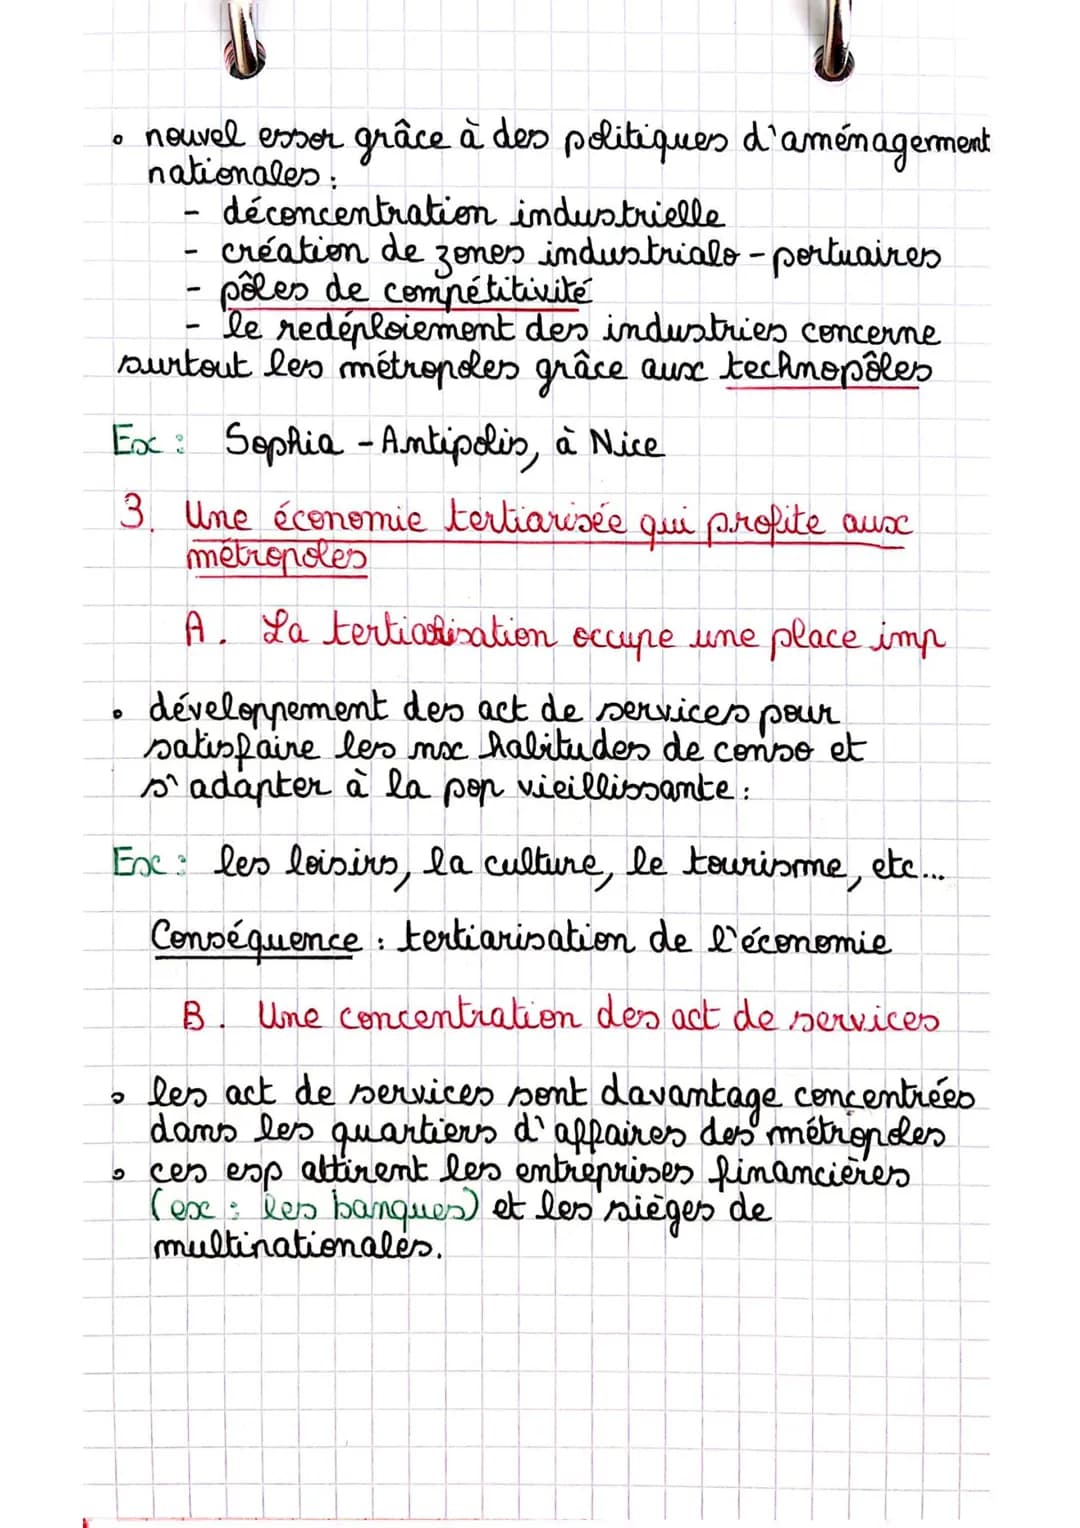 • nouvel essor grâce à des politiques d'aménagement
nationales :
- déconcentration industrielle
- création de zones industrialo-portuaires
- pôles de compétitivité
- le redéploiement des industries concerne
surtout les métropoles grâce aux technopôles
Ex : Sophia-Antipolis, à Nice
3. Une économie tertiarisée qui profite aux
métropoles
A. La tertialisation occupe une place imp
• développement des act de services pour
satisfaire les nx habitudes de conso et
s'adapter à la pop vieillissante :
Ex : les loisirs, la culture, le tourisme, etc...
Conséquence : tertiarisation de l'économie
B. Une concentration des act de services
• les act de services sont davantage concentrées
dans les quartiers d'affaires des métropoles
• ces esp attirent les entreprises financières
(ex : les banques) et les sièges de
multinationales.